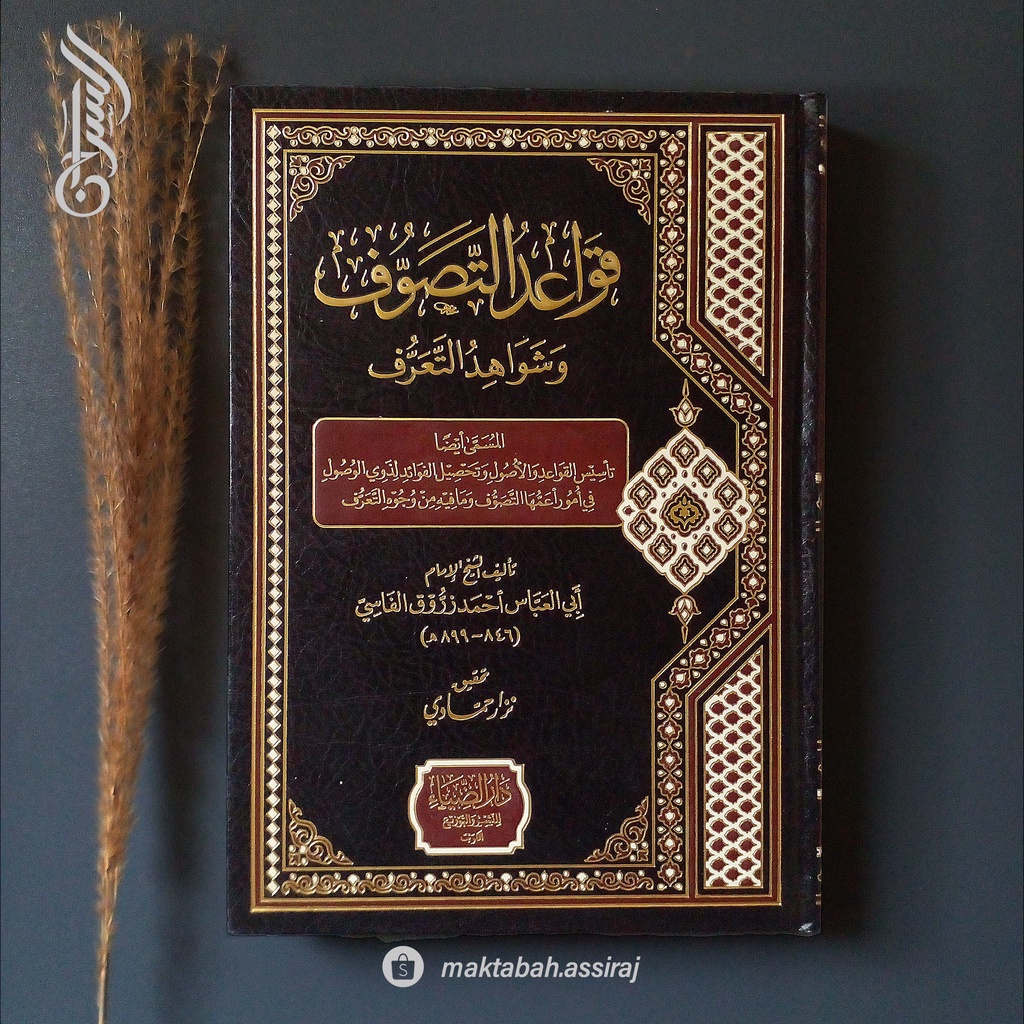 السراج
قَوَاعِدُ التَّصَوُّف
وَشَوَاهِدُ التَّعَرُّف
المُسَمَّى أَيْضًا
تَأسِيْسِ القَوَاعِدِ وَالأُصُولِ وَتَحْصِيْلِ الفَوَائِدِ لِذَوِي الوُصُولِ
فِي أُمُورٍ أَعَمُّهَا التَّصَوُّف وَمَا فِيْهِ مِنْ وُجُوهِ التَّعَرُّف
تأليف الشيخ الإمام
أَبِي العَبَّاس أَحْمَد زَرُّوْق الفَاسِيّ
(٨٤٦ - ٨٩٩ هـ)
تحقيق
نزار حمادي
دَارُ الضِّيَاءِ
لِلنَّشْرِ وَالتَّوْزِيْعِ
الكويت
maktabah.assiraj